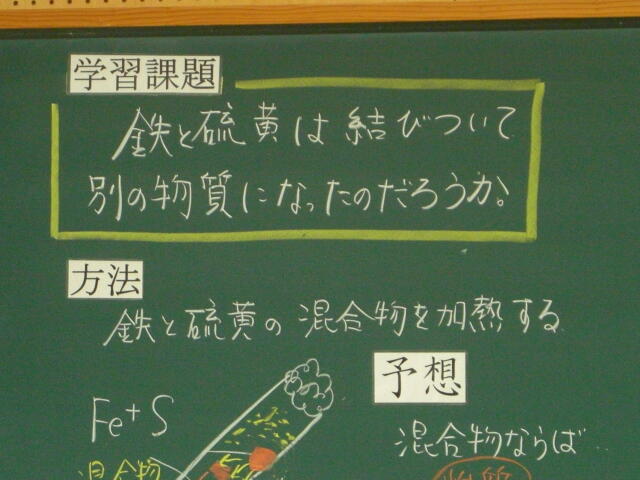 学習課題
鉄と硫黄は結びついて
別の物質になったのだろうか。
方法
鉄と硫黄の混合物を加熱する
予想
Fe+S
混合物ならば
混合物